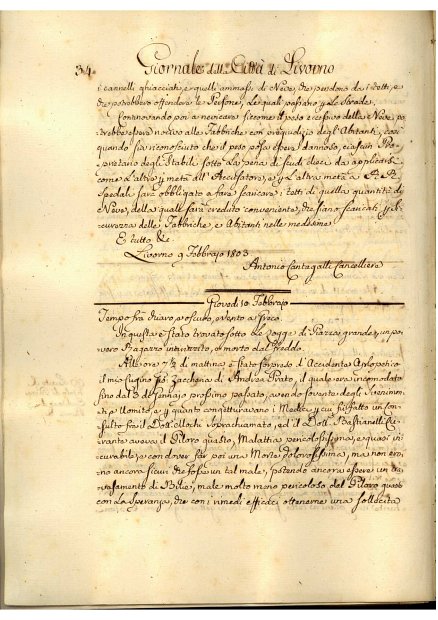 34.
Giornale della Città di Livorno
i cannelli ghiacciati, e quelli ammassi di Neve, che pendono da i tetti, e
che potrebbero offendere le Persone, le quali passano p le Strade.
Continovando poi a nevicare siccome il peso eccessivo della Neve, po
trebbe essere nocivo alle Fabbriche con pregiudizio degl'Abitanti, così
quando sia riconosciuto che il peso possa essere dannoso, ciascun Pro
pretario degli Stabili sotto la pena di scudi dieci da applicarsi
come l'altra p metà all'Accusatore, e p l'altra metà a
Spedale sarà obbligato a fare scaricare i tetti di quella quantità di
Neve, della quale sarà creduto conveniente, che siano scaricati p si
curezza delle Fabbriche e Abitanti nelle medesime
E tutto &c.
Livorno 9 Febbrajo 1803
Antonio Cantagalli Cancelliere
Giovedì 10 Febbrajo
Tempo fra chiaro, e oscuro, e vento a Greco.
In questa è stato trovato sotto le Logge di Piazza grande, un po
vero Ragazzo intirizzito, e morto dal freddo.
All'ore 7½ di mattina è stato sorpreso l'Accidente Aplopetico
il mio Cugino Zaccheria di Andrea Prato, il quale era incomodato
fino dal dì 3 di Gennajo prossimo passato, avendo sovente degl'
p Vomito, e p quanto congetturavano i Medici, p cui fu fatto un Con
sulto fra il Dott. Mochi sopracchiamato, ed il Dott. Bastianelli Cu
rante aveva il Piloro guasto, Malattia pericolosissima, e quasi in
curabile, e con dover far poi una Morte dolorosissima, ma non ero,
no ancora sicuri che fosse un tal male, potendo ancora essere un tra
vasamento di Bile, male molto meno pericoloso del Piloro guasto
con la speranza, che con i rimedi efficaci ottenerne una sollecita